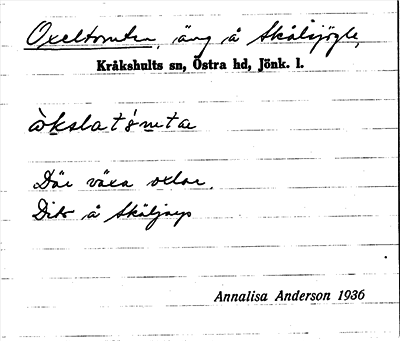 Oxeltomten, äng å Skälsjögle,
Kråkshults sn, Östra hd, Jönk. l.
òkslatómtæ
Där växa oxlar.
Dito å
Annalisa Anderson 1936